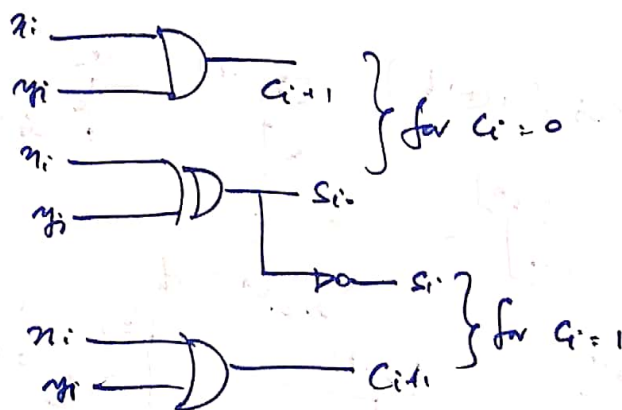 xi
yi
Ci+1
} for Ci = 0
xi
yi
Si
Si
} for Ci = 1
xi
yi
Ci+1